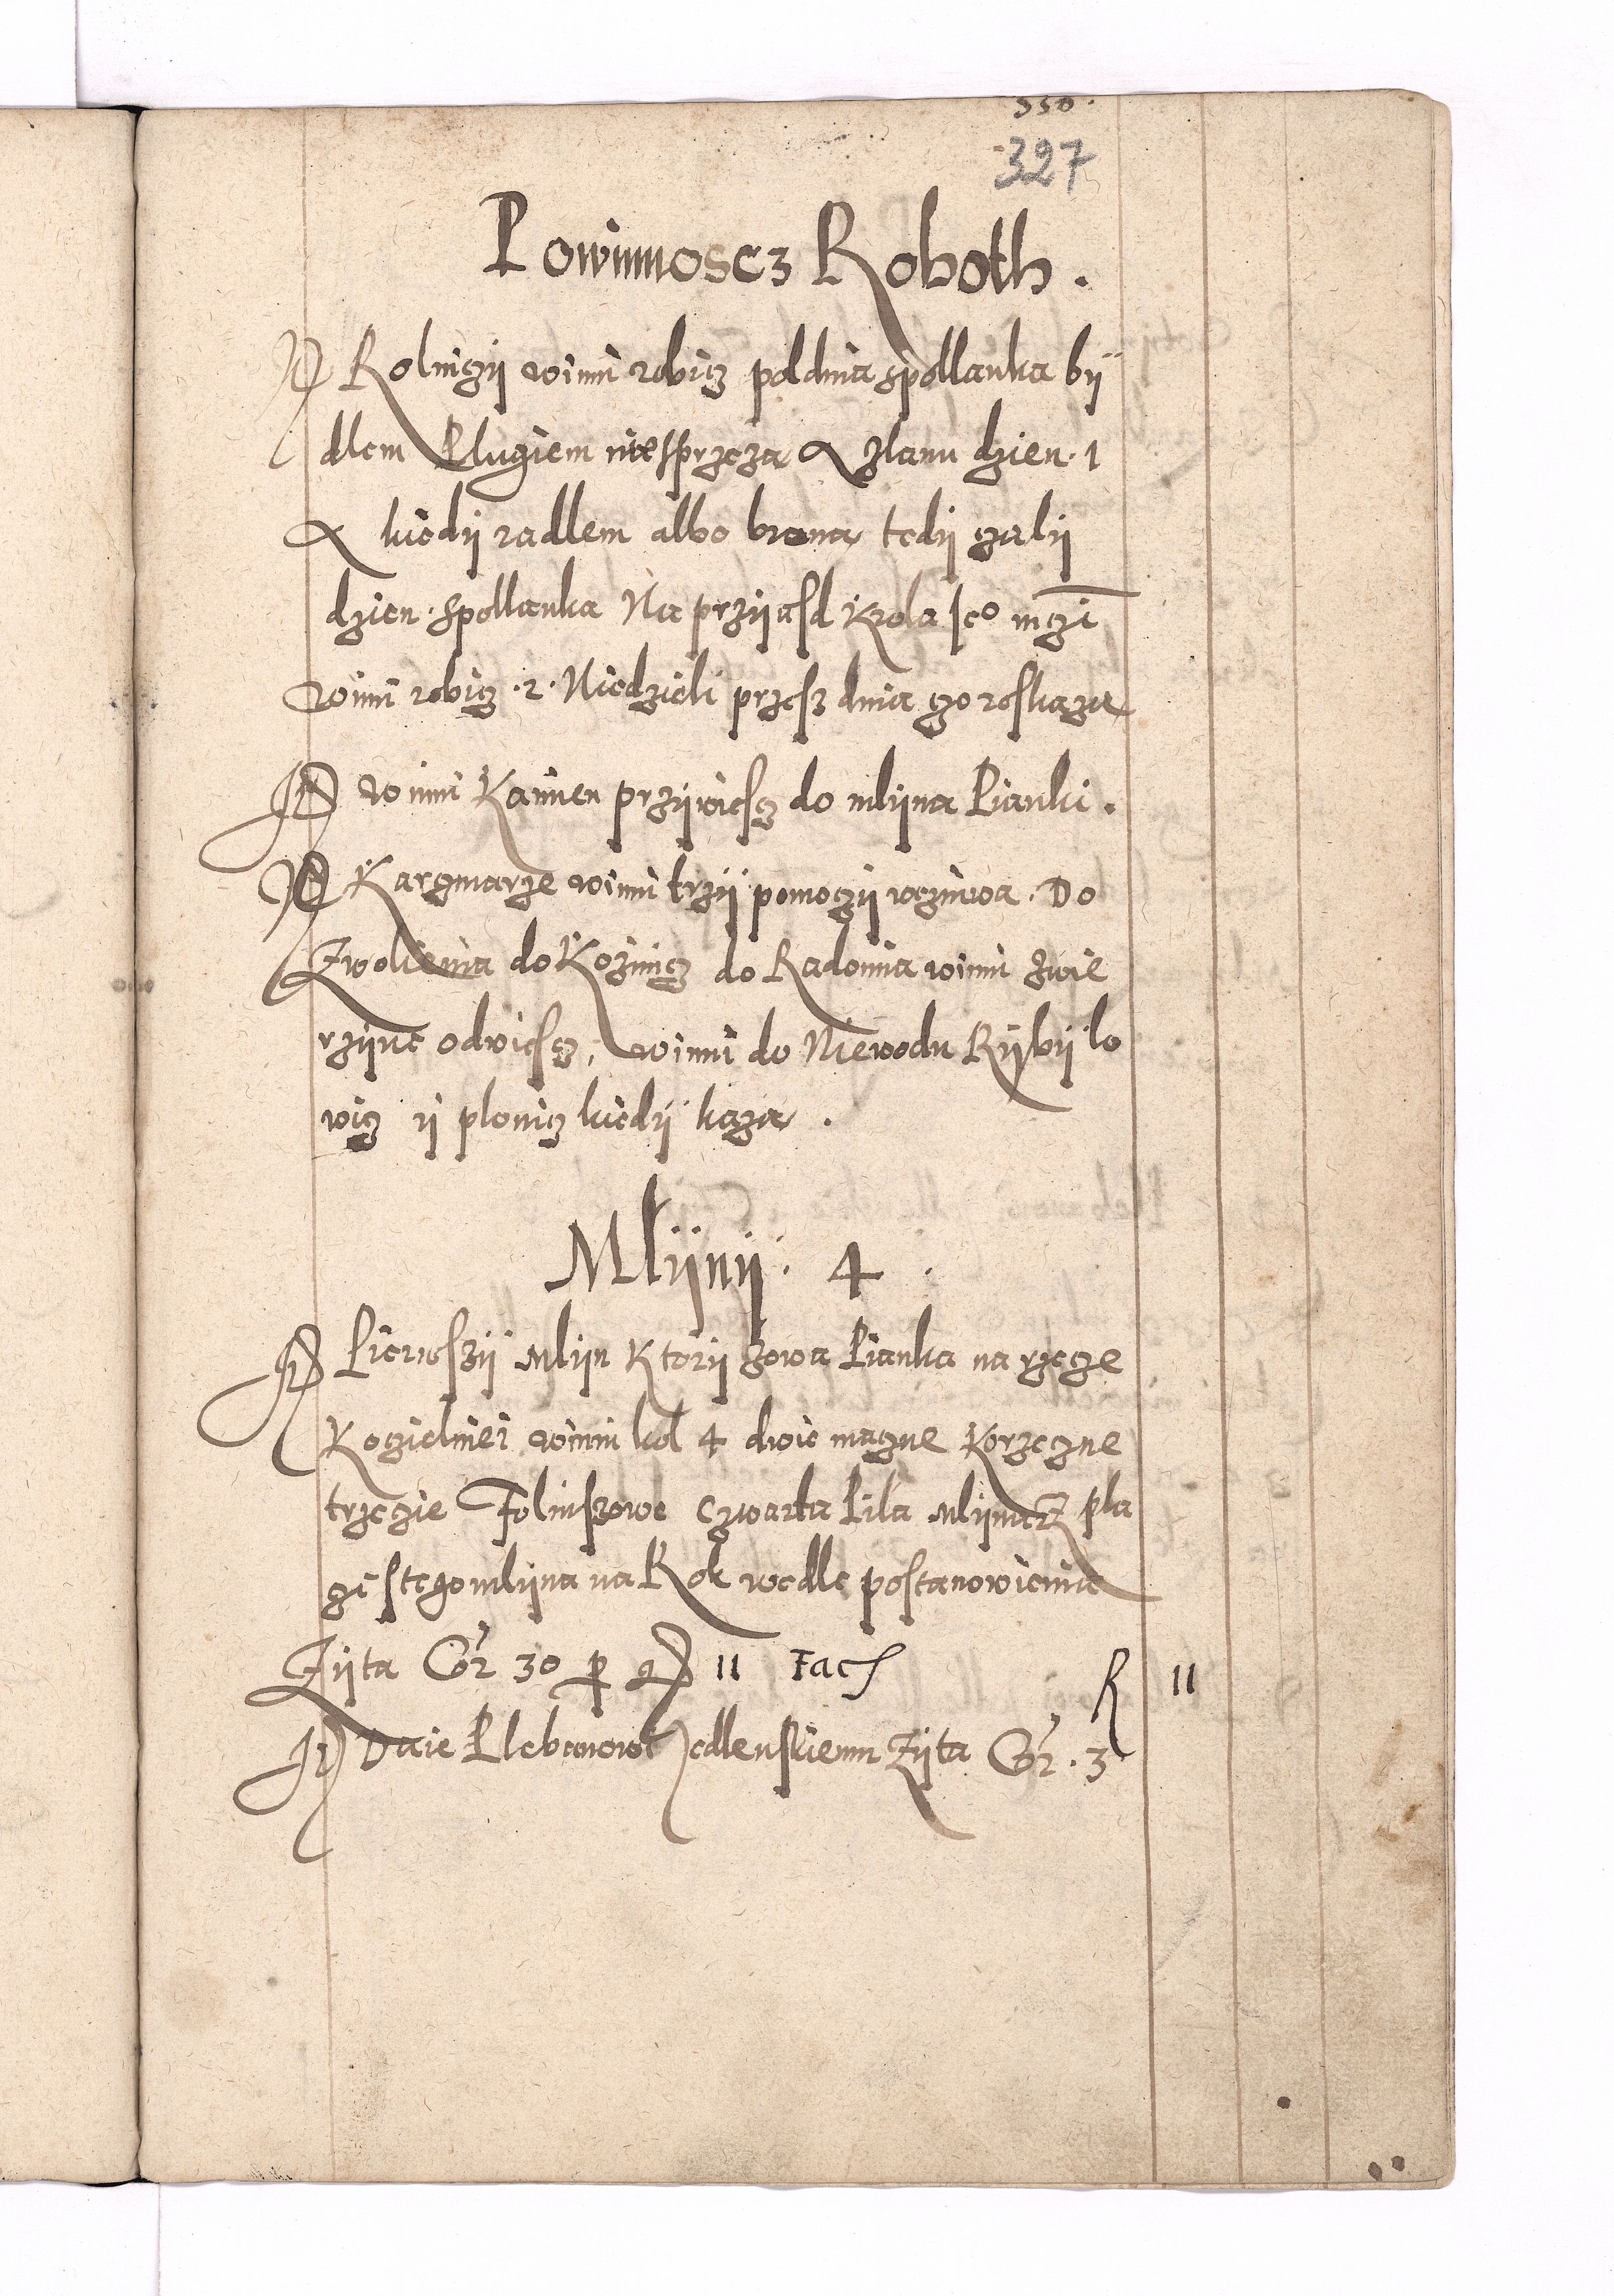 350.
327
Powinnoscz Roboth.
It Rolniczÿ winni robicz poldnia spollanka bÿ
dlem Plugiem nizesprzeza A zlanu dzien · 1
A kiedÿ radlem albo brona tedÿ czalÿ
dzien · spollanka Na przÿasd Krola Jeº mczi
winni robicz · 2 · Niedzieli przesz dnia czo roskaza
It winni Kamien przÿwiescz do mlÿna Pianki .
It Karczmarze winni trzÿ pomoczÿ wezniwa . Do
Zwolienia do Koznicz do Radomia winni zwie
rzÿne odwiescz, winni do Niewodu Rÿbÿ lo
wicz ÿ plonicz kiedÿ kaza .
Mlÿnÿ · 4 .
It Pierwszÿ Mlÿn Ktorÿ zowa Pianka na rzecze
Kozielniei wnim kol 4 dwie maczne Korzeczne
trzeczie Foliuszowe Czwarta Pila Mlÿnarz pla
czi stego mlÿna na Rok wedle postanowienia
Zÿta Cor 30 p 11 Fac
R 11
It Daie Plebanowi Jedlenskiemu Zÿta Cor . 3